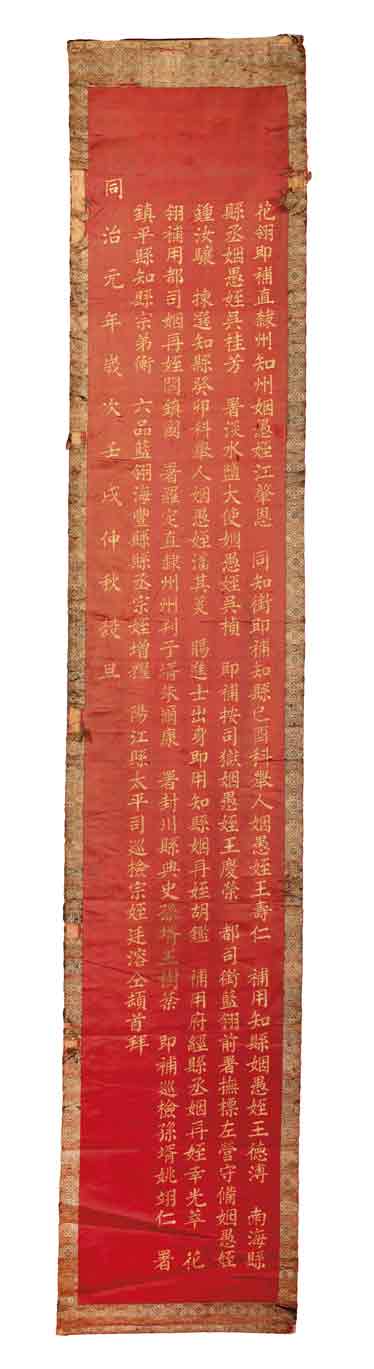 花翎即補直隸州知州姻愚姪江肇恩　同知銜即補知縣己酉科舉人姻愚姪王壽仁　補用知縣姻愚姪王德溥　南海縣
縣丞姻愚姪吳桂芳　署淡水鹽大使姻愚姪吳楨　即補按司獄姻愚姪王慶榮　都司銜藍翎前署撫標左營守備姻愚姪
鍾汝驤　揀選知縣癸卯科舉人姻愚姪潘其菼　賜進士出身即用知縣姻再姪胡鑑　補用府經縣丞姻再姪幸光萃　花
翎補用都司姻再姪閻鎮國　署羅定直隸州州判子壻朱爾康　署封川縣典史孫壻王樹棻　即補巡檢孫壻姚翊仁　署
鎮平縣知縣宗弟衡　六品藍翎海豐縣縣丞宗姪增　陽江縣太平司巡檢宗姪廷溶仝頓首拜
同治元年歲次壬戌仲秋穀旦